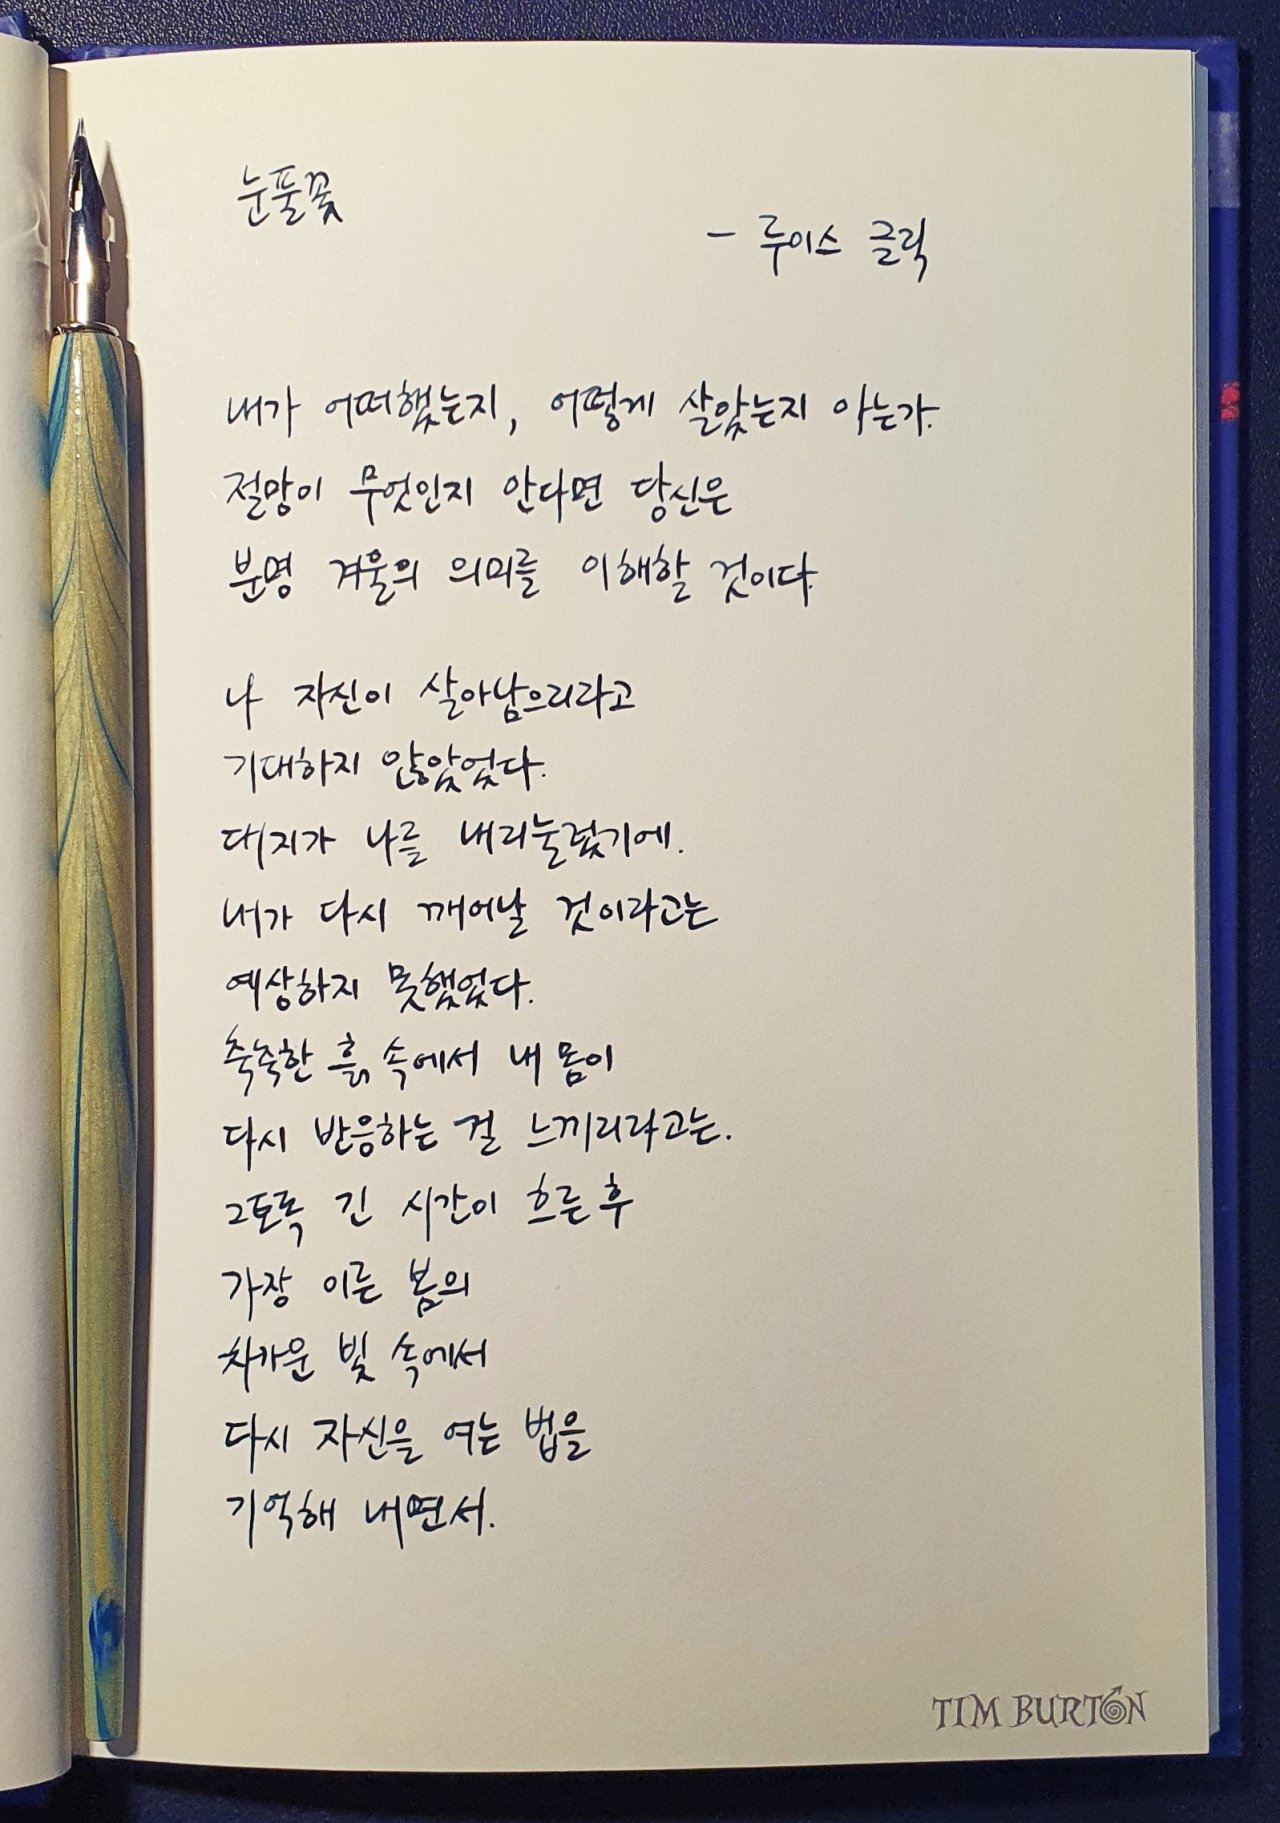 눈풀꽃
- 루이스 글릭
내가 어떠했는지, 어떻게 살았는지 아는가.
절망이 무엇인지 안다면 당신은
분명 겨울의 의미를 이해할 것이다.
나 자신이 살아남으리라고
기대하지 않았었다.
대지가 나를 내리눌렀기에.
내가 다시 깨어날 것이라고는
예상하지 못했었다.
축축한 흙 속에서 내 몸이
다시 반응하는 걸 느끼리라고는.
그토록 긴 시간이 흐른 후
가장 이른 봄의
차가운 빛 속에서
다시 자신을 여는 법을
기억해 내면서.
TIM BURTON